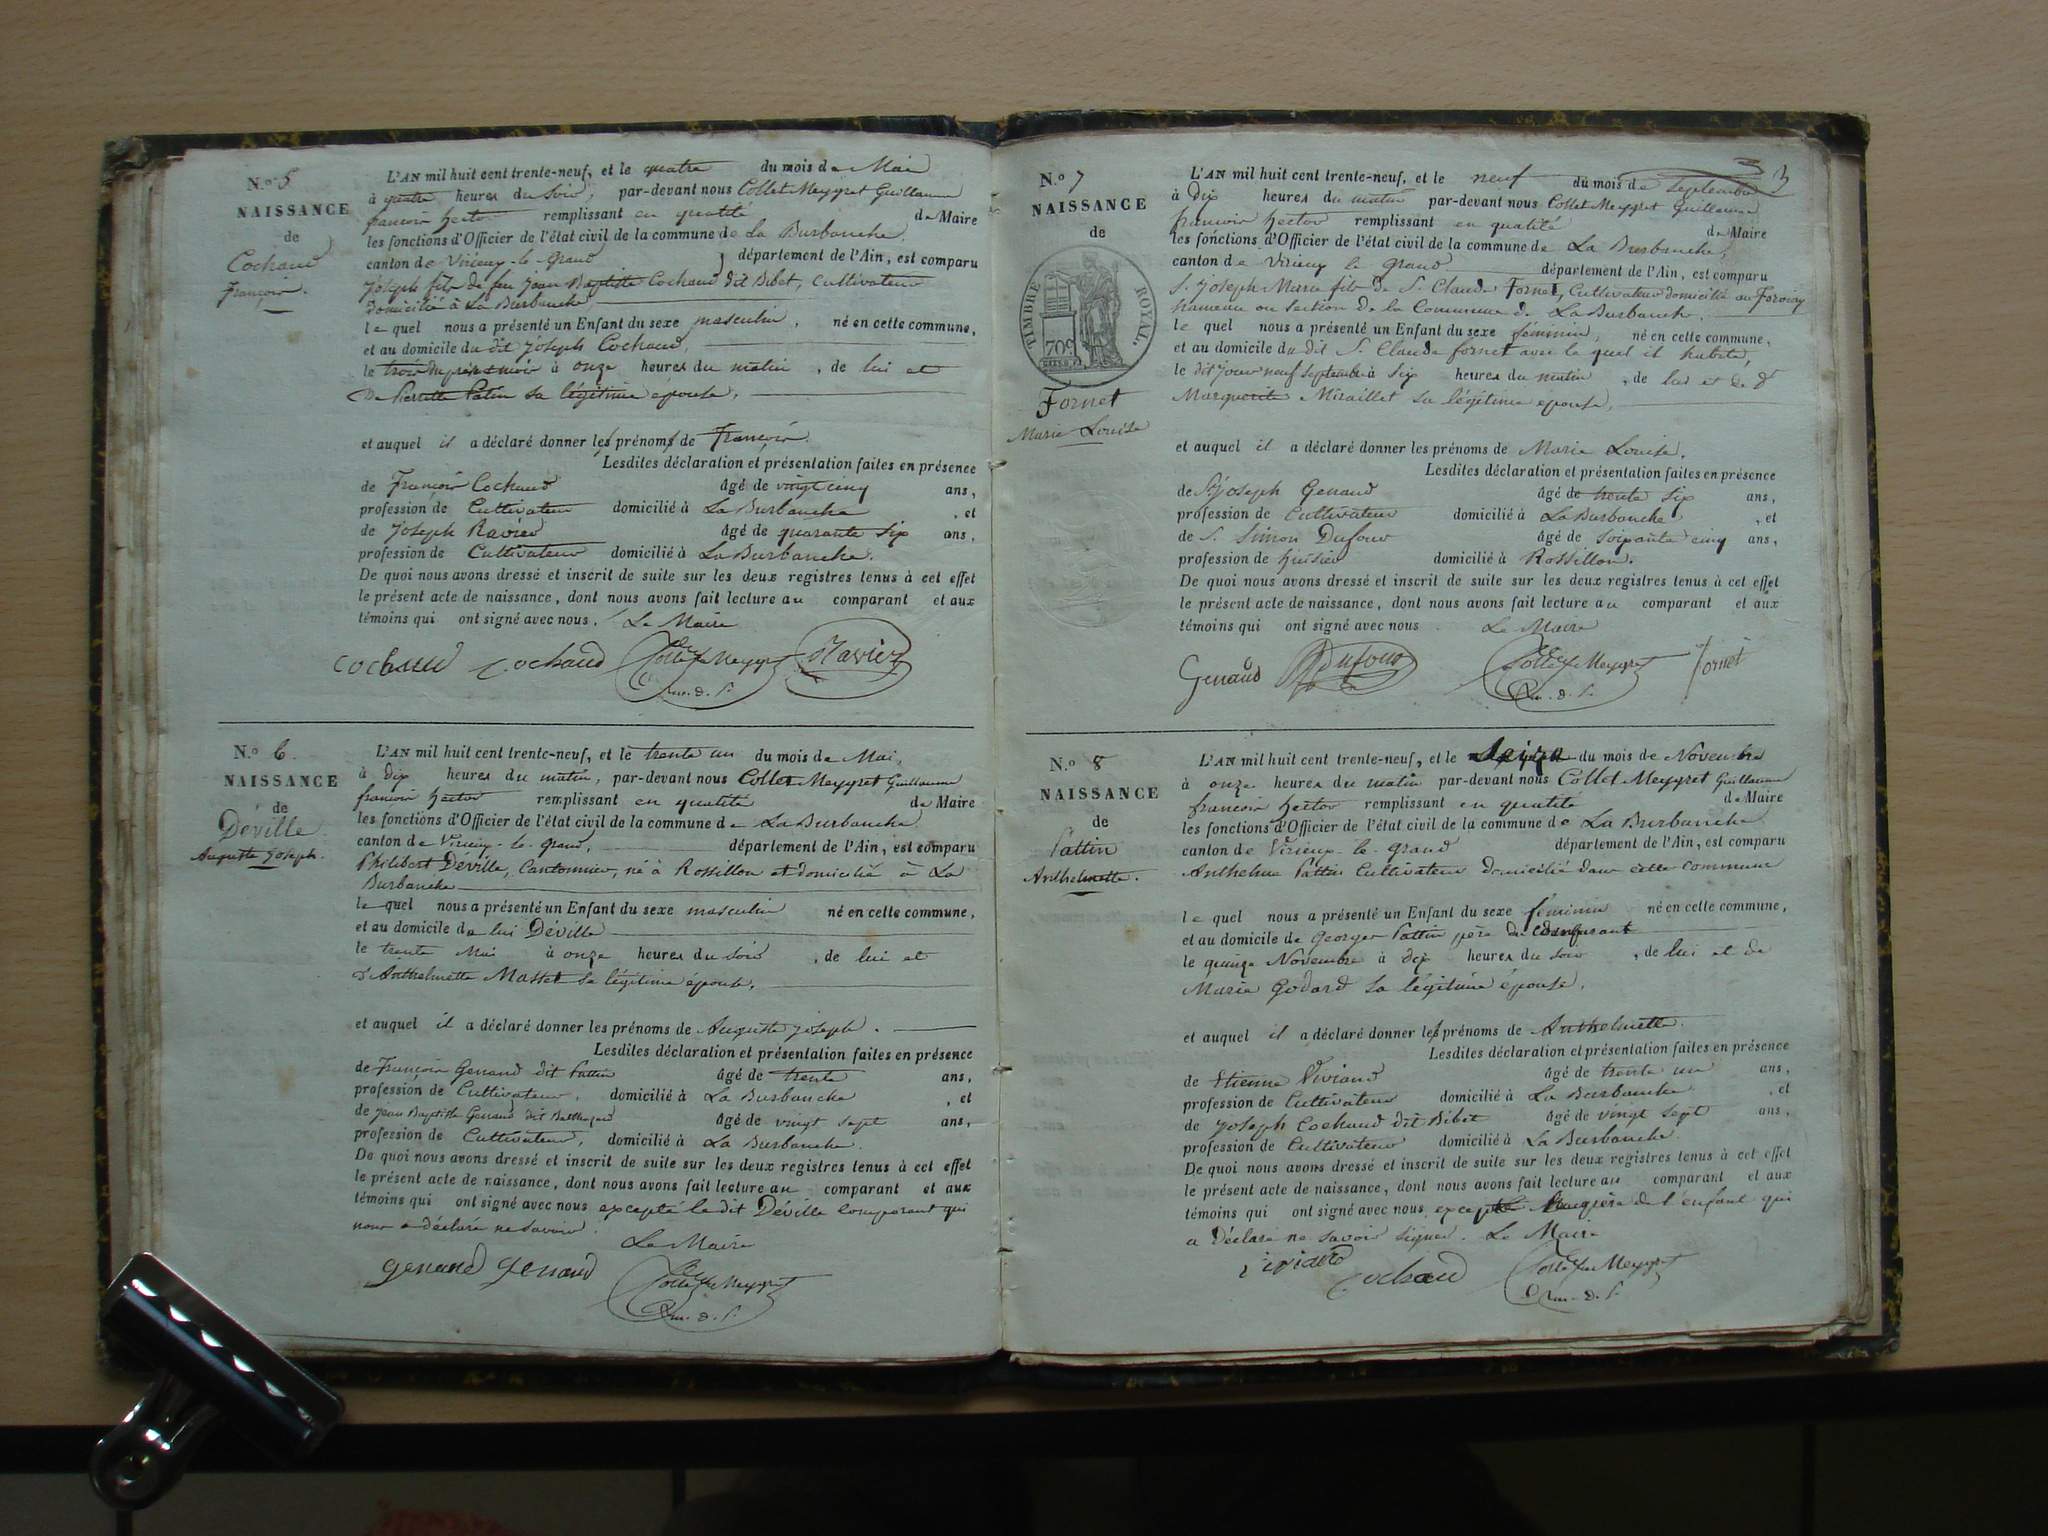 N.º 5
NAISSANCE
de
Cochaud
François.
L'AN mil huit cent trente-neuf, et le quatre du mois de Mai
à quatre heures du soir, par-devant nous Collet Meygret Guillaume
françois hector remplissant en qualité de Maire
les fonctions d'Officier de l'état civil de la commune de La Burbanche,
canton de Virieux-le-grand, département de l'Ain, est comparu
Joseph fils de feu Jean Baptiste Cochaud dit Bibet, Cultivateur
domicilié à La Burbanche
le quel nous a présenté un Enfant du sexe masculin, né en cette commune,
et au domicile du dit Joseph Cochaud,
le trois du présent mois à onze heures du matin, de lui et
De Pierrette Patin sa légitime épouse,
et auquel il a déclaré donner les prénoms de François.
Lesdites déclaration et présentation faites en présence
de François Cochaud âgé de vingt cinq ans,
profession de Cultivateur domicilié à La Burbanche, et
de Joseph Ravier âgé de quarante six ans,
profession de Cultivateur domicilié à La Burbanche.
De quoi nous avons dressé et inscrit de suite sur les deux registres tenus à cet effet
le présent acte de naissance, dont nous avons fait lecture au comparant et aux
témoins qui ont signé avec nous. Le Maire
cochaud cochaud Collet Meygret Ravier
N.º 6
NAISSANCE
de
Déville
Auguste Joseph.
L'AN mil huit cent trente-neuf, et le trente un du mois de Mai,
à dix heures du matin, par-devant nous Collet Meygret Guillaume
françois hector remplissant en qualité de Maire
les fonctions d'Officier de l'état civil de la commune de La Burbanche
canton de Virieux-le-grand, département de l'Ain, est comparu
Philibert Déville, Cantonnier, né à Rossillon et domicilié à La
Burbanche
le quel nous a présenté un Enfant du sexe masculin né en cette commune,
et au domicile de lui Déville
le trente Mai à onze heures du soir, de lui et
d'Anthelmette Masset sa légitime épouse,
et auquel il a déclaré donner les prénoms de Auguste Joseph.
Lesdites déclaration et présentation faites en présence
de François Genaud dit Pattin âgé de trente ans,
profession de Cultivateur, domicilié à La Burbanche, et
de Jean Baptiste Genaud dit Balthazard âgé de vingt sept ans,
profession de Cultivateur, domicilié à La Burbanche.
De quoi nous avons dressé et inscrit de suite sur les deux registres tenus à cet effet
le présent acte de naissance, dont nous avons fait lecture au comparant et aux
témoins qui ont signé avec nous excepté le dit Déville comparant qui
nous a déclaré ne savoir. Le Maire
genaud genaud Collet Meygret
3
N.º 7
NAISSANCE
de
TIMBRE ROYAL.
Fornet
Marie Louise
L'AN mil huit cent trente-neuf, et le neuf du mois de Septembre
à dix heures du matin par-devant nous Collet Meygret Guillaume
françois hector remplissant en qualité de Maire
les fonctions d'Officier de l'état civil de la commune de La Burbanche,
canton de Virieux le grand département de l'Ain, est comparu
S. Joseph Marie fils de S. Claude Fornet, Cultivateur domicilié au
hameau ou section de la Commune de La Burbanche,
le quel nous a présenté un Enfant du sexe féminin, né en cette commune,
et au domicile du dit S. Claude fornet avec le quel il habite,
le dit jour neuf septembre à six heures du matin, de lui et de d.
Marguerite Miraillet sa légitime épouse,
et auquel il a déclaré donner les prénoms de Marie Louise.
Lesdites déclaration et présentation faites en présence
de S. Joseph Genaud âgé de trente six ans,
profession de Cultivateur domicilié à La Burbanche, et
de S. Simon Dufour âgé de soixante cinq ans,
profession de huissier domicilié à Rossillon.
De quoi nous avons dressé et inscrit de suite sur les deux registres tenus à cet effet
le présent acte de naissance, dont nous avons fait lecture au comparant et aux
témoins qui ont signé avec nous. Le Maire
Genaud Dufour Collet Meygret fornet
N.º 8
NAISSANCE
de
Pattin
Anthelmette.
L'AN mil huit cent trente-neuf, et le Seize du mois de Novembre
à onze heures du matin par-devant nous Collet Meygret Guillaume
françois hector remplissant en qualité de Maire
les fonctions d'Officier de l'état civil de la commune de La Burbanche
canton de Virieux-le-grand département de l'Ain, est comparu
Anthelme Pattin Cultivateur domicilié dans cette commune
le quel nous a présenté un Enfant du sexe féminin né en cette commune,
et au domicile de Georges Pattin père du comparant
le quinze Novembre à dix heures du soir, de lui et de
Marie Godard sa légitime épouse,
et auquel il a déclaré donner les prénoms de Anthelmette.
Lesdites déclaration et présentation faites en présence
de Etienne Viviand âgé de trente un ans,
profession de Cultivateur domicilié à La Burbanche, et
de Joseph Cochaud dit Bibet âgé de vingt sept ans,
profession de Cultivateur domicilié à La Burbanche.
De quoi nous avons dressé et inscrit de suite sur les deux registres tenus à cet effet
le présent acte de naissance, dont nous avons fait lecture au comparant et aux
témoins qui ont signé avec nous, excepté père de l'enfant qui
a déclaré ne savoir signer. Le Maire
cochaud Collet Meygret